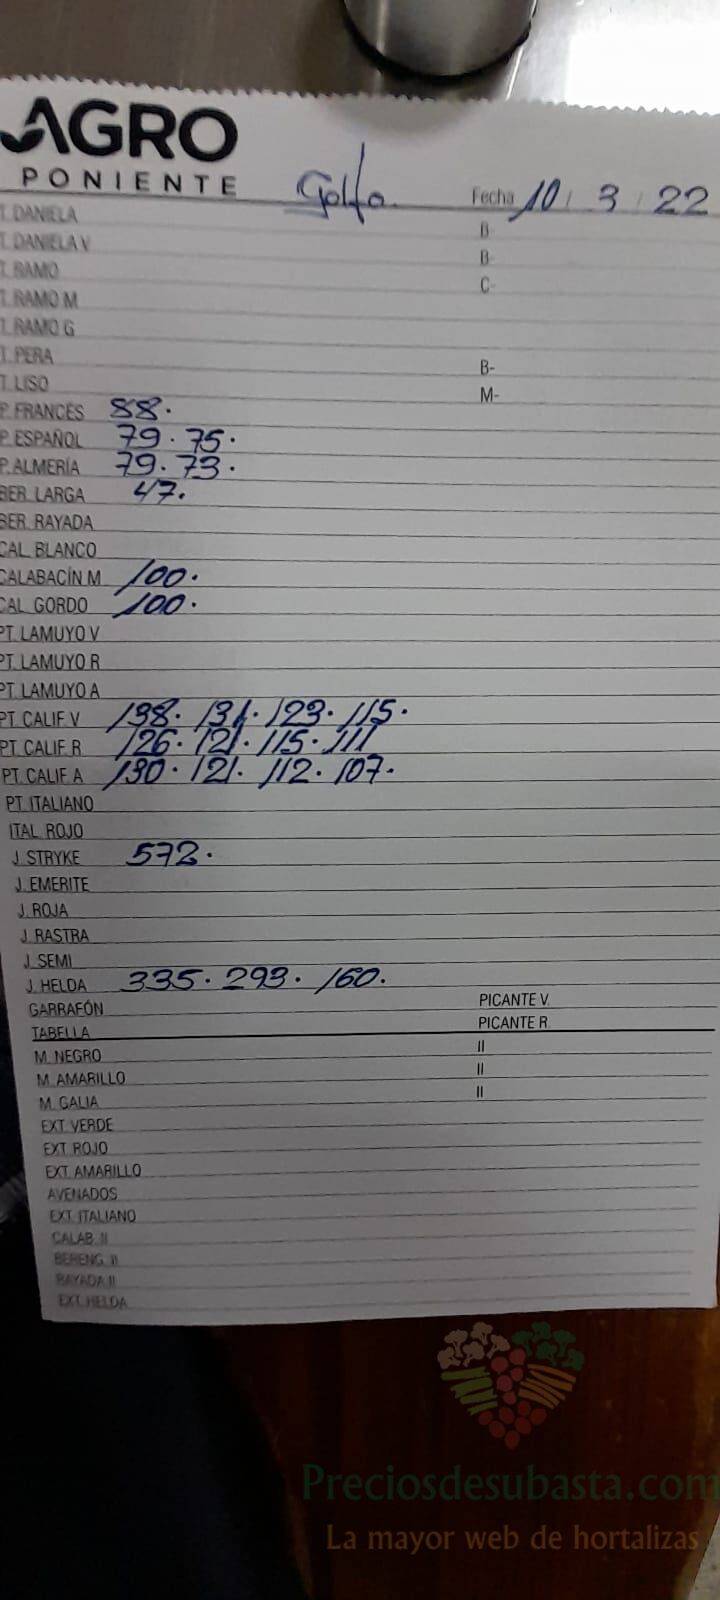 AGRO
PONIENTE
Golfo Fecha 10 / 3 / 22
T. DANELA
B-
T. DANELA V
B-
T. RAMO
C-
T. RAMO M
T. RAMO G
T. PERA
B-
T. LISO
M-
P. FRANCÉS 88.
P. ESPAÑOL 79. 75.
P. ALMERÍA 79. 73.
BER. LARGA 47.
BER. RAYADA
CAL. BLANCO
CALABACÍN M 100.
CAL. GORDO 100.
PT. LAMUYO V
PT. LAMUYO R
PT. LAMUYO A
PT. CALIF. V 138. 131. 123. 115.
PT. CALIF. R 126. 121. 115. 111
PT. CALIF. A 130. 121. 112. 107.
PT. ITALIANO
ITAL. ROJO
J. STRYKE 572.
J. EMERITE
J. ROJA
J. RASTRA
J. SEMI
J. HELDA 335. 293. 160.
GARRAFÓN PICANTE V.
TABELLA PICANTE R.
M. NEGRO II
M. AMARILLO II
M. GALIA II
EXT. VERDE
EXT. ROJO
EXT. AMARILLO
AVENADOS
EXT. ITALIANO
CALAB. II
BERENG. II
RAYADA II
EXT. HELDA
Preciosdesubasta.com
La mayor web de hortalizas